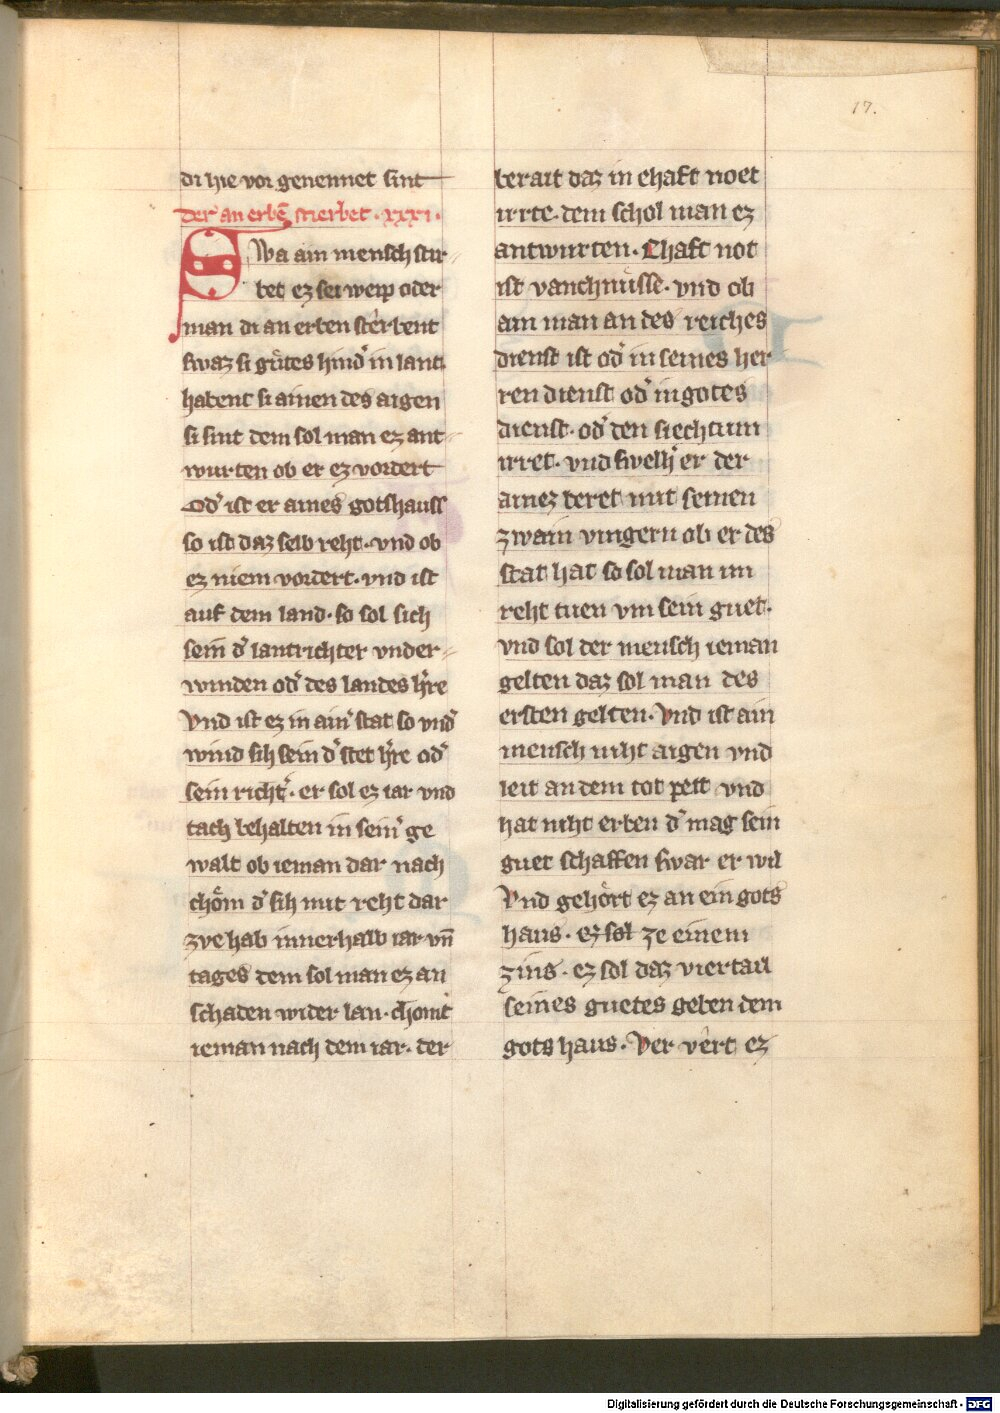 17.
di hie vor genennet sint
der an erbē stierbet · xxxi ·
Swa ain mensch stir-
bet ez sei weip oder
man di an erben sterbent
swaz si gůtes hind᾽ in lant
habent si ainen des aigen
si sint dem sol man ez ant-
wurten ob er ez vordert
Od᾽ ist er aines gotshauss
so ist daz selb reht · vnd ob
ez niem vordert · vnd ist
auf dem land · so sol sich
sein d᾽ lantrichter vnder-
winden od᾽ des landes h᾽re
Vnd ist ez in ain᾽ stat so vnd᾽
wind sih sein d᾽ stet h᾽re od᾽
sein richt᾽ · er sol ez iar vnd
tach behalten in sein᾽ ge
walt ob ieman dar nach
chöm d᾽ sih mit reht dar
zve hab innerhalb iar vn̄
tages dem sol man ez an
schaden wider lan · chomt
ieman nach dem iar · der
berait daz in ehaft noet
irrte · dem schol man ez
antwurten · Ehaft not
ist vanchnüsse · vnd ob
ain man an des reiches
dienst ist od᾽ in seines her
ren dienst od᾽ in gotes
dienst · od᾽ den siechtum
irret · vnd swelh᾽ er der
ainez beret mit seinen
zwain vingern ob er des
stat hat so sol man im
reht tuen vm sein guet ·
vnd sol der mensch ieman
gelten daz sol man des
ersten gelten · Vnd ist ain
mensch niht aigen vnd
leit an dem tot pett vnd
hat niht erben d᾽ mag sein
guet schaffen swar er wil
Vnd gehört ez an ein gots
haus · ez sol ze einem
zins · ez sol daz viertail
seines guetes geben dem
gots haus · Ver vêrt ez
Digitalisierung gefördert durch die Deutsche Forschungsgemeinschaft - DFG